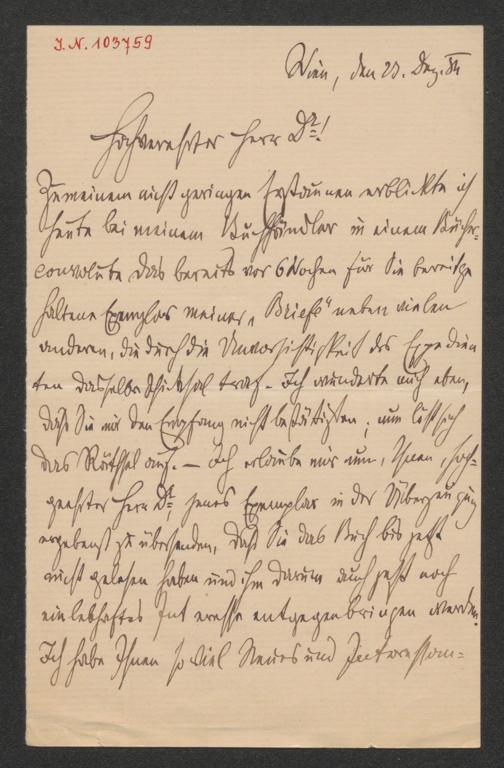 J.N. 103759
Wien, den 23. Dez. 84
Hochverehrter Herr Dr!
Zu meinem nicht geringen Erstaunen erblickte ich
heute bei meinem Buchhändler in einem Bücher-
convolute das bereits vor 6 Wochen für Sie bereitge
haltene Exemplar meiner „Briefe" neben vielen
anderen, die durch die Unvorsichtigkeit des Expedien
ten dasselbe Schicksal traf. Ich wunderte mich eben,
daß Sie mir den Empfang nicht bestätigten; nun löst sich
das Räthsel auf. – Ich erlaube mir nun, Ihnen, hoch-
geehrter Herr Dr, jenes Exemplar in der Überzeugung
ergebenst zu übersenden, daß Sie das Buch bis jetzt
nicht gelesen haben und ihm darum auch jetzt noch
ein lebhaftes Interesse entgegenbringen werden.
Ich habe Ihnen so viel Neues und Interessan-